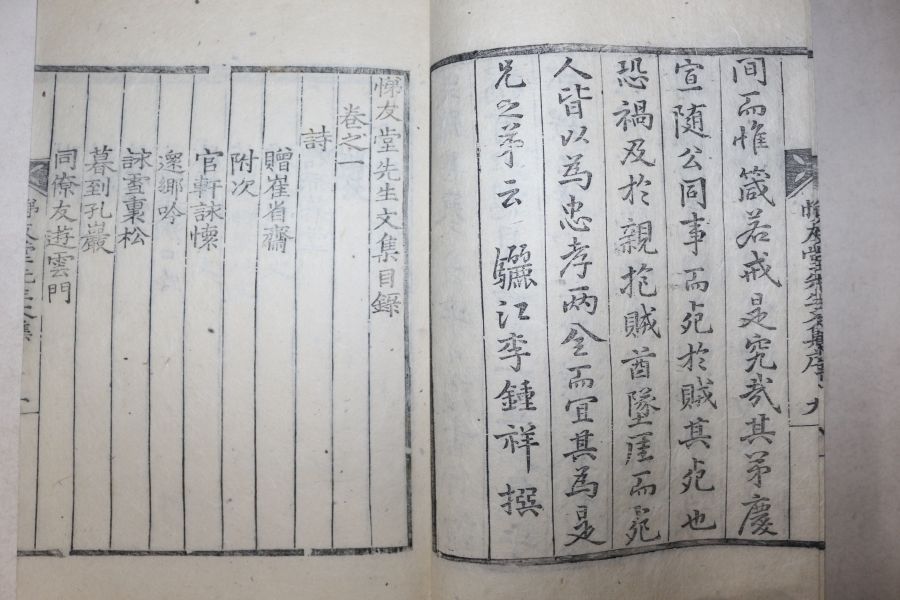 間而惟箴若戒是究哉其弟慶
宣随公同事而死於賊其死也
恐禍及於親抱賊酋墜崖而死
人皆以為忠孝兩全而宜其為是
兄之弟云 驪江李鍾祥撰
悌友堂先生文集序 九
悌友堂先生文集目錄
卷之一
詩
贈崔省齋
附次
官軒詠懷
還鄉吟
詠雪裏松
暮到孔巖
同僚友遊雲門
悌友堂先生文集